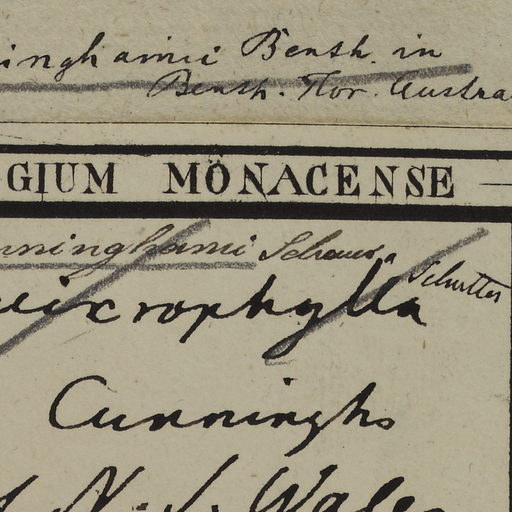 inghamii Benth. in
Benth. Flor. Austra
GIUM MONACENSE
nninghamii Schauer
microphylla
Cunninghs
N. S. Wales